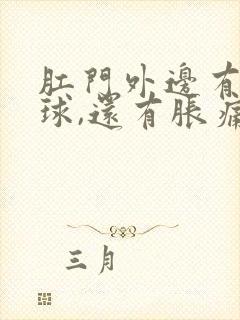 肛門外邊有
球,還有脹痛
三月